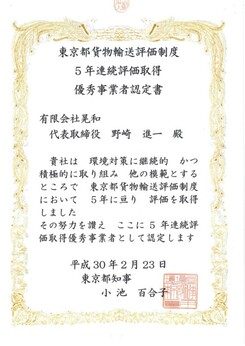 東京都貨物輸送評価制度
5年連続評価取得
優秀事業者認定書
有限会社晃和
代表取締役 野崎 進一 殿
貴社は 環境対策に継続的 かつ
積極的に取り組み 他の模範とする
ところで 東京都貨物輸送評価制度
において 5年に亘り 評価を取得
しました
その努力を讃え ここに5年連続評
価取得優秀事業者として認定します
平成30年2月23日
東京都知事
小池 百合子